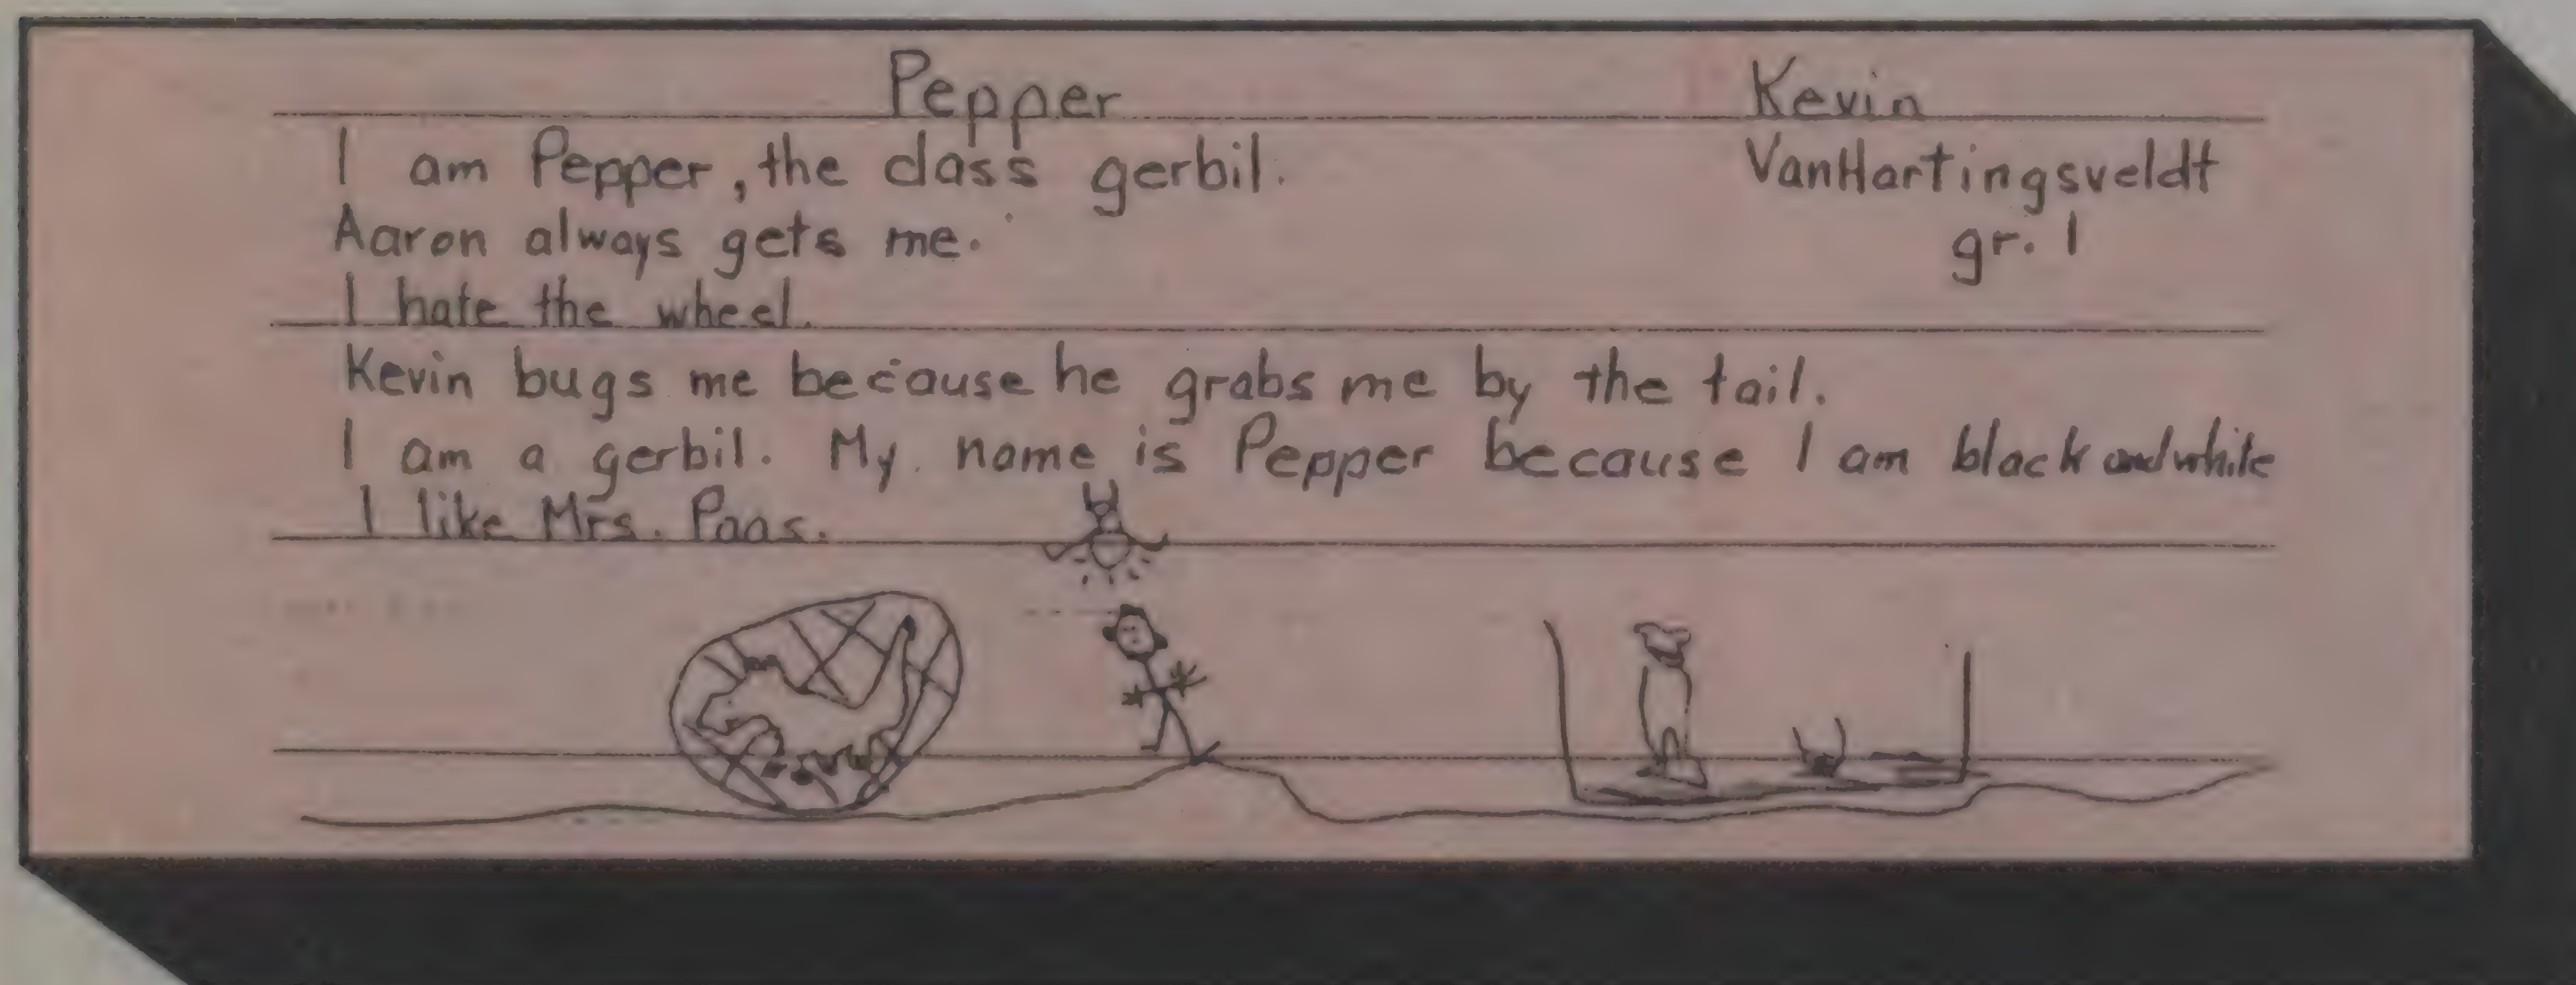 Pepper
Kevin
VanHartingsveldt
gr. 1
I am Pepper, the class gerbil.
Aaron always gets me.
I hate the wheel.
Kevin bugs me because he grabs me by the tail.
I am a gerbil. My name is Pepper because I am black and white
I like Mrs. Paas.